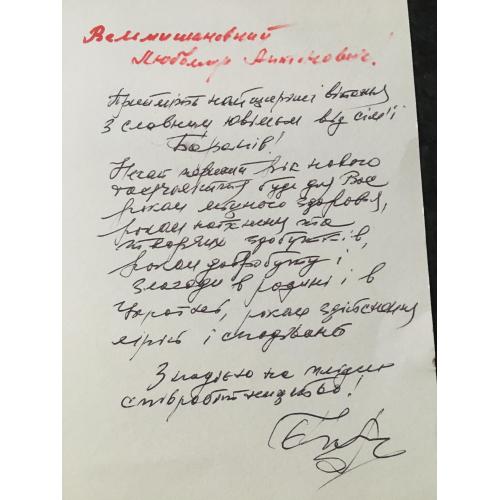 Вельмишановний
Любомир Антонович!
Прийміть найщиріші вітання
з славним ювілеєм від сім'ї
Баранів!
Нехай перший рік нового
тисячоліття буде для Вас
роком міцного здоров'я,
роком натхнення та
творчих здобутків,
роком добробуту і
злагоди в родині і в
Україні, роком здійснення
мрій і сподівань
З надією на плідне
співробітництво!